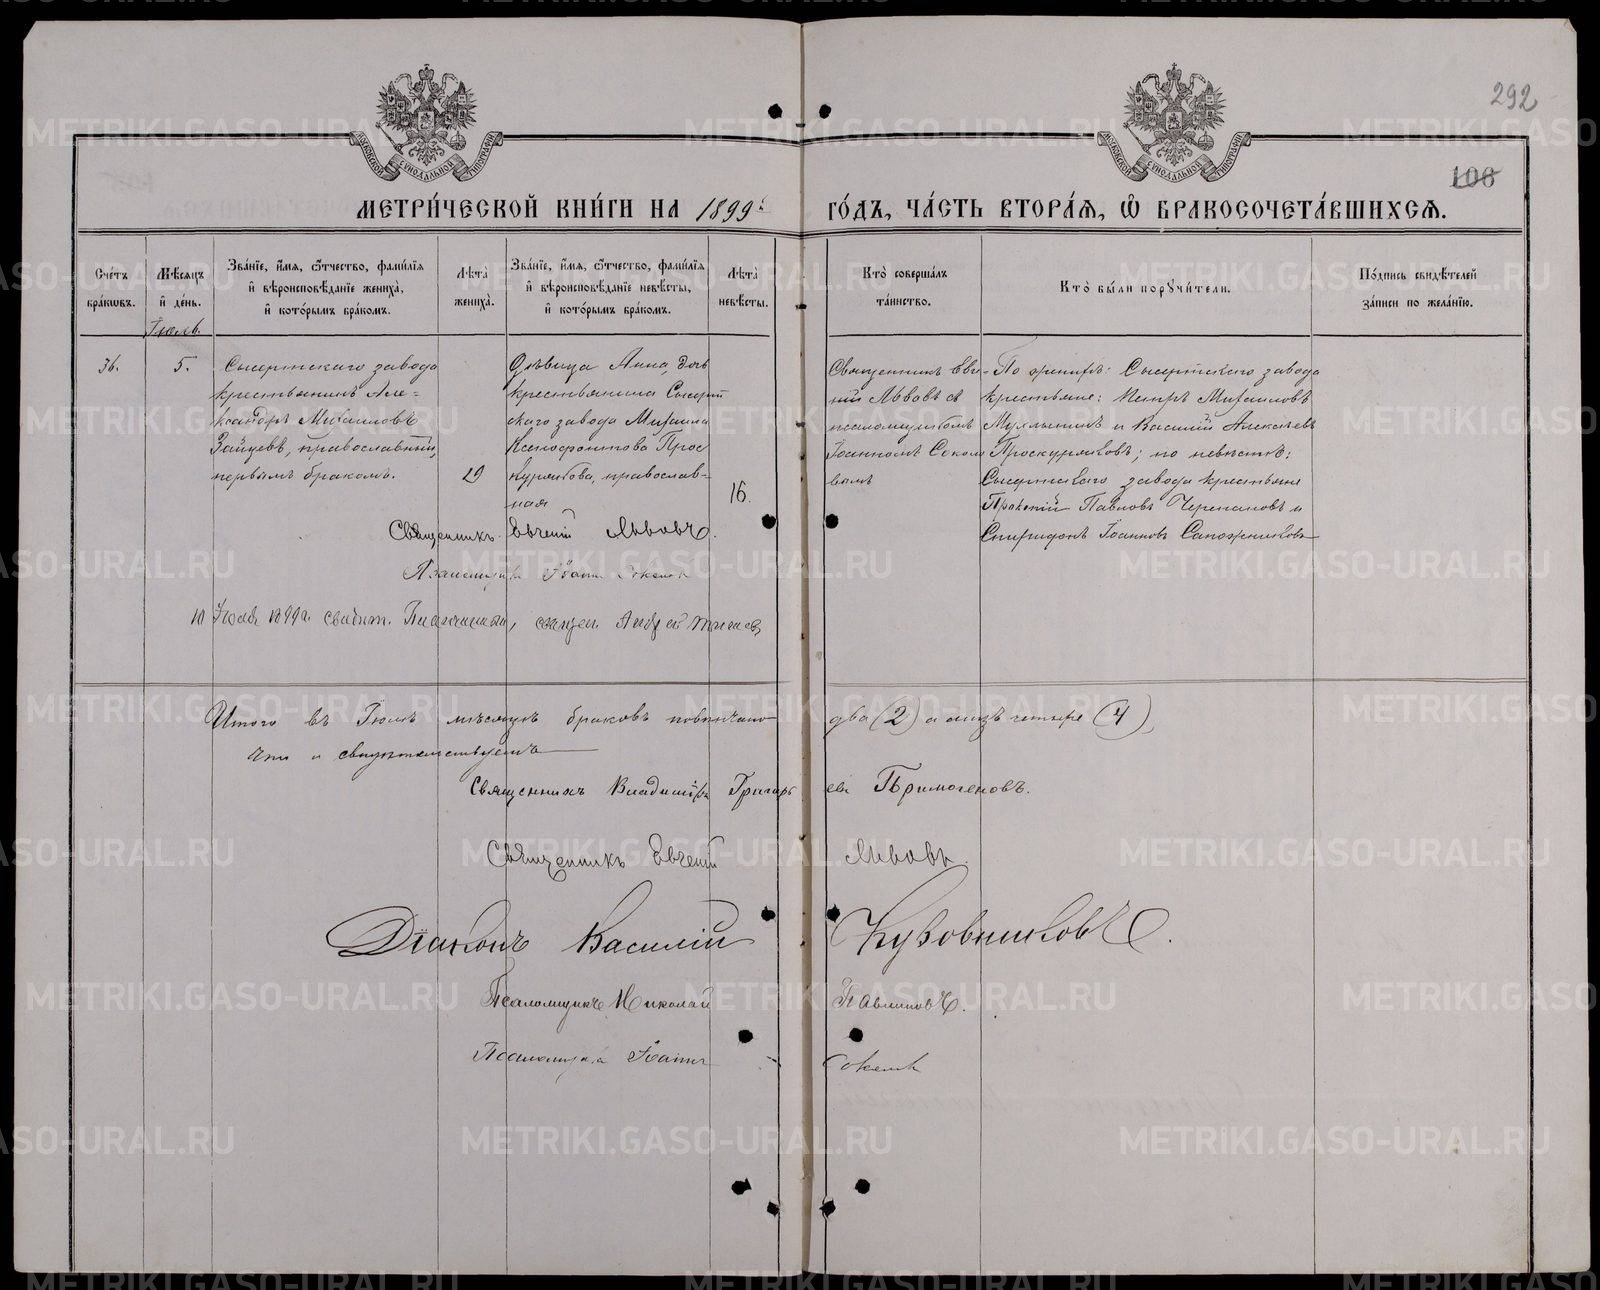 292
106
МЕТРИ́ЧЕСКОЙ КНИ́ГИ НА 1899й ГО́ДЪ, ЧА́СТЬ ВТОРА́Я, Ѽ БРАКОСОЧЕТА́ВШИХСЯ.
Сче́тъ бра́ковъ.
Мѣ́сяцъ и҆ де́нь.
Зва́нїе, и҆́мя, ѻ҆́тчество, фами́лїя и҆ вѣроисповѣ́данїе жениха̀, и҆ кото́рымъ бра́комъ.
Лѣта̀ жениха̀.
Зва́нїе, и҆́мя, ѻ҆́тчество, фами́лїя и҆ вѣроисповѣ́данїе невѣ́сты, и҆ кото́рымъ бра́комъ.
Лѣта̀ невѣ́сты.
Кто̀ соверша́лъ та́инство.
Кто̀ бы́ли порꙋчи́тели.
По́дпись свидѣ́телей за́писи по жела́нїю.
Іюль.
36.
5.
Сысертскаго завода
крестьянинъ Але-
ксандръ Михаиловъ
Зайцевъ, православный,
первымъ бракомъ.
19
Дѣвица Анна, дочь
крестьянина Сысерт
скаго завода Михаила
Ксенофонтова Прос
курякова, православ-
ная
16.
Священникъ Евге-
ній Львовъ съ
псаломщикомъ
Іоанномъ Соколо
вымъ
По женихѣ: Сысертскаго завода
крестьяне: Петръ Михаиловъ
Мухлынинъ и Василій Алексѣевъ
Проскуряковъ; по невѣстѣ:
Сысертскаго завода крестьяне
Павловъ Черепановъ и
Спиридонъ Іоанновъ Сапожниковъ
Священникъ Евгеній Львовъ.
Псаломщикъ Іоаннъ Соколовъ
10 Іюля 1899 г. свидѣт. Благочинный, священ. Андрей
Итого въ Іюлѣ мѣсяцѣ браковъ повѣнчано два (2) а лицъ четыре (4),
что и свидѣтельствуемъ
Священникъ Владиміръ Григорь евъ Примогеновъ.
Священникъ Евгеній Львовъ.
Діаконъ Василій Кузовниковъ.
Псаломщикъ Николай Павлиновъ.
Псаломщикъ Іоаннъ Соколовъ